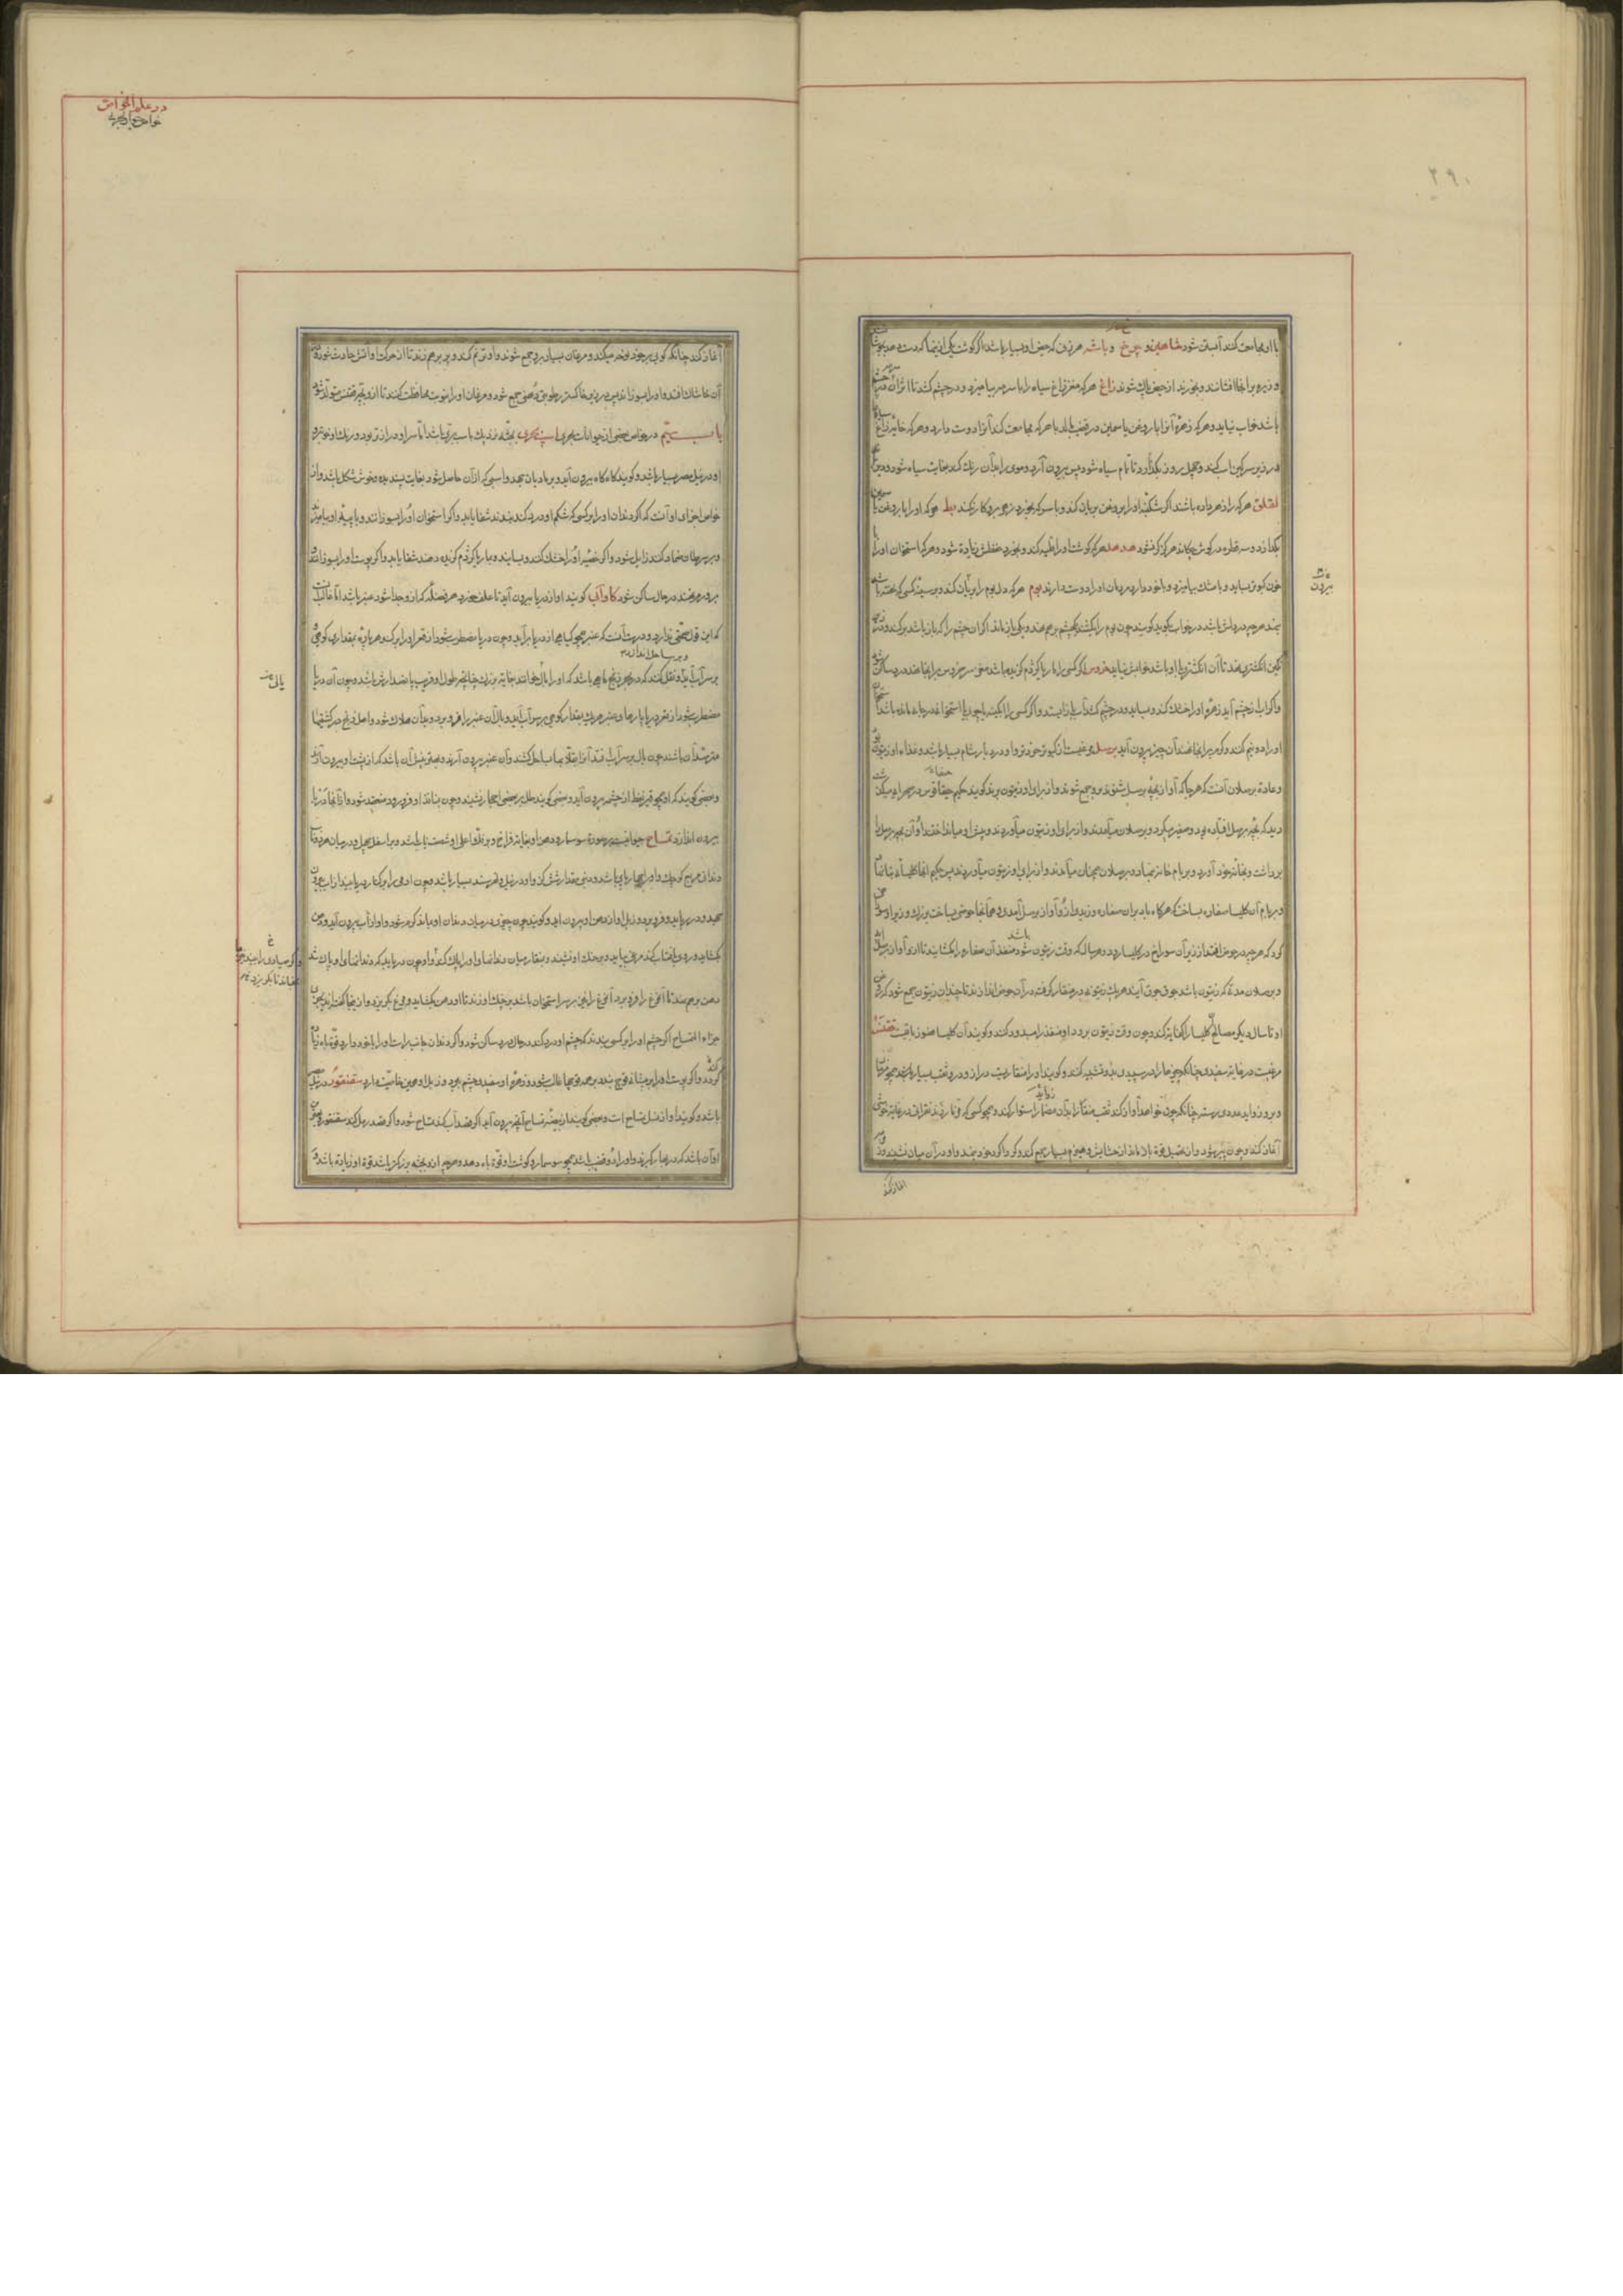 ۲۹۰
با او مجامعت کند آبستن شود شاهین و چرخ و باشه هر زن که حیض او بسیار باشد اگر گوشت یکی ازینها که دست دهد بجوشاند
و زیره برانجا افشانند و بخورند از حیض پاک شوند زاغ هر که مغز زاغ سیاه را با سرمه بیامیزد و در چشم کشد تا اثر آن در چشم
باشد خواب نیاید و هر که زهره آنرا با روغن یاسمین در قضیب مالد با هر که مجامعت کند آنزن او را دوست دارد و هر که خایه زاغ
در زیر سرکین اسب کند و چهل روز بگذارد تا تمام سیاه شود پس بیرون آرد و موی را بدان رنگ کند بغایت سیاه شود
لقلق هر که را زهر داده باشند اگر شکنبه او را بروغن بریان کند و با سرکه بخورد زهر برو کار نکند بط هر که او را با روغن
بگدازد و سه قطره در گوش چکاند هرگز کر نشود هدهد هر که گوشت او را قلیه کند و بخورد حفظش زیادة شود و هر که استخوان او را با
خون کبوتر بساید و با مشک بیامیزد و با خود دارد مردمان او را دوست دارند بوم هر که دل بوم را بریان کند و بر سینه کسی که خفته باشد
بنهد هر چه در دلش باشد در خواب بگوید گویند چون بوم را بکشند یکچشم برهم نهد و یکی باز ماند اگر آن چشم را که باز باشد برکند و در زیر
نگین انگشتری نهد تا آن انگشتری با او باشد خوابش نیاید خروس اگر کسی را مار یا کژدم گزیده باشد مغز سر خروس بر انجا نهد درد ساکن شود
و اگر آب از چشم آید زهره او را خشک کند و بساید و در چشم کشد آب باز ایستد و اگر کسی را آبگینه یا چوب یا استخوان در جائی مانده باشد
او را دو نیم کنند و گرم بر انجا نهند آن چیز بیرون آید برسل مرغیست از کبوتر خردتر و او در دیار شام بسیار باشد و غذاء او زیتون بود
و عادة برسلان آنست که هر جا که آواز بچه برسل شنوند برو جمع شوند و از برای او زیتون برند گویند حکیم حیقاقوس در صحرا میگذشت
دید که بچه برسل افتاده بود و صفیر میکرد و برسلان میآمدند و از برای او زیتون میآوردند و پیش او میانداختند او آن بچه برسل را
برداشت و بخانه خود آورد و بر بام خانه نهاد و برسلان همچنان میآمدند و از برای او زیتون میآوردند پس حکیم انجا کلیسائی بنا نهاد
و بر بام آن کلیسا صفاره بساخت که هر گاه باد بر آن صفاره وزیدی ازو آواز برسل آمدی و هم آنجا حوضی بساخت بزرگ و زیر او سوراخ
کرد که هر چه در حوض افتد از زیر آن سوراخ در کلیسا رود و هر سال که وقت زیتون باشد منفذ آن صفاره را بکشایند تا ازو آواز برسل آید
و برسلان مدة که زیتون باشد جوق جوق آیند هر یک زیتونه در منقار گرفته در آن حوض اندازند تا چندان زیتون جمع شود که
او تا سال دیگر مصالح کلیسا را کفایة کند و چون وقت زیتون برود او منفذ را مسدود کنند و گویند آن کلیسا هنوز باقیست ققنس
مرغیست در غایة سفیدی چنانکه چیزها را در سپیدی بدو تشبیه کنند و گویند او را منقاریست دراز و درو ثقب بسیار باشد همچو مزمار
و برو زواید عددی رسته چنانکه چون خواهد آواز کند ثقب منقار را بدان استوار کند همچو کسی که نی زند و نغمات در غایة خوشی
آغاز کند و چون پیر شود و از تحصیل قوة باز ماند از حشایش و هیزم بسیار جمع کند و گرداگرد خود بنهد و او در آن میان نشیند و
آغاز کند
بیرون
در علم الخواص
خواص حیوان بحری
آغاز کند چنانکه گویی بر خود نوحه میکند و مرغان بسیار برو جمع شوند و او ترنم کند و پر برهم زند تا از حرکت او آتش حادث شود و در
آن خاشاک افتد و او را بسوزاند پس در زیر خاکستر رطوبتی دهنی جمع شود و مرغان او را بنوبت محافظت کنند تا ازو بچه ققنس متولد شود
باب سیم در خواص بعضی از حیوانات بحری اسب بحری بجثه نزدیک باسب بری باشد اما سر او دراز تر بود و رنگ او خوبتر
او در نیل مصر بسیار باشد و گویند گاه گاه بیرون آید و بر مادیان جهد و اسبی که از آن حاصل شود بغایت پسندیده و خوش شکل باشد و از
خواص اجزای او آنست که اگر دندان او را بر کسی که شکم او درد کند بندند شفا یابد و اگر استخوان او را بسوزانند و با پیه او بیامیزند
و بر سرطان ضماد کنند زایل شود و اگر خصیه او را خشک کنند و بسایند و مار یا کژدم گزیده دهند شفا یابد و اگر پوست او را بسوزانند و
بر ورم نهند در حال ساکن شود گاو آب گویند او از دریا بیرون آید تا علف بخورد هر فضله که ازو جدا شود عنبر باشد اما غالب آنست
که این قول تحقیقی ندارد و درست آنست که عنبر همچو گیاهی از دریا برآید و چون دریا مضطرب شود از قعر او را بر کند و هر پاره بمقدار کوهی
و بر ساحل اندازد
بر سر آب آید و نقل کنند که در بحر زنج ماهیی باشد که او را بال خوانند بغایة بزرگ چنانچه طول او قریب پانصد ارش باشد و چون آن دریا
مضطرب شود از قعر دریا پارهاء عنبر هر یک بمقدار کوهی بر سر آب آید و بال آن عنبر را فرو برد و بدان هلاک شود و اهل زنج در کشتیها
مترصد آن باشند چون بال بر سر آب افتد آنرا بقلابها بساحل کشند و آن عنبر بیرون آرند و بهترینش آن باشد که از پشت او بیرون آرند
و بعضی گویند که او همچو قیر و نفط از چشمه بیرون آید و بعضی گویند طل بر بعضی احجار نشیند و چون بماند او فرو رود منعقد شود و از انجا دریا
بیرون اندازد تمساح حیوانیست بر صورة سوسمار و دهن او بغایة فراخ و بر فک اعلی او شصت ناب باشد و بر اسفل چهل و در میان هر دو ناب
دندانی مربع کوچک و او را چهار پای باشد و دمی بمقدار شش گز و او در نیل و نهر سند بسیار باشد و چون آدمی را بر کنار دریا بیند از آب بیرون
جهد و در رباید و فرو برد و زبل او از دهن او بیرون آید و گویند چون چیزی در میان دندان او بماند کرم شود و او از آب بیرون آید و دهن
بگشاید و روی بآفتاب کند مرغی بیاید و بر حنک او نشیند و بمنقار میان دندانهاء او را پاک کند و او چون دریابد که دندانهاء او پاک شد
دهن برهم نهد تا آنمرغ را فرو برد آنمرغ را نیز بر سر استخوان باشد بر حنک او زند تا او دهن بگشاید و مرغ بگریزد و از اینجا گفته اند
جزاء التمساح اگر چشم او را بر کسی بندند که چشم او درد کند در حال درد ساکن شود و اگر دندان جانب راست او را با خود دارد قوة باه زیادة
گردد و اگر پوست او را بر پیشانی قوچ بندند بر همه قوچها غالب شود و زهره او سفیدی چشم ببرد و زبل او همین خاصیت دارد سقنقور در نیل مصر
باشد و گویند او از نسل تمساح است و بعضی گویند از بیضه تمساح آنچه بیرون آید اگر قصد آب کند تمساح شود و اگر قصد رمل کند سقنقور و بهترین
او آن باشد که در بهار گیرند و او را دو قضیب باشد همچو سوسمار و گوشت او قوة باه دهد و هر چه ازو بجثه بزرگتر باشد قوة او زیادة باشد